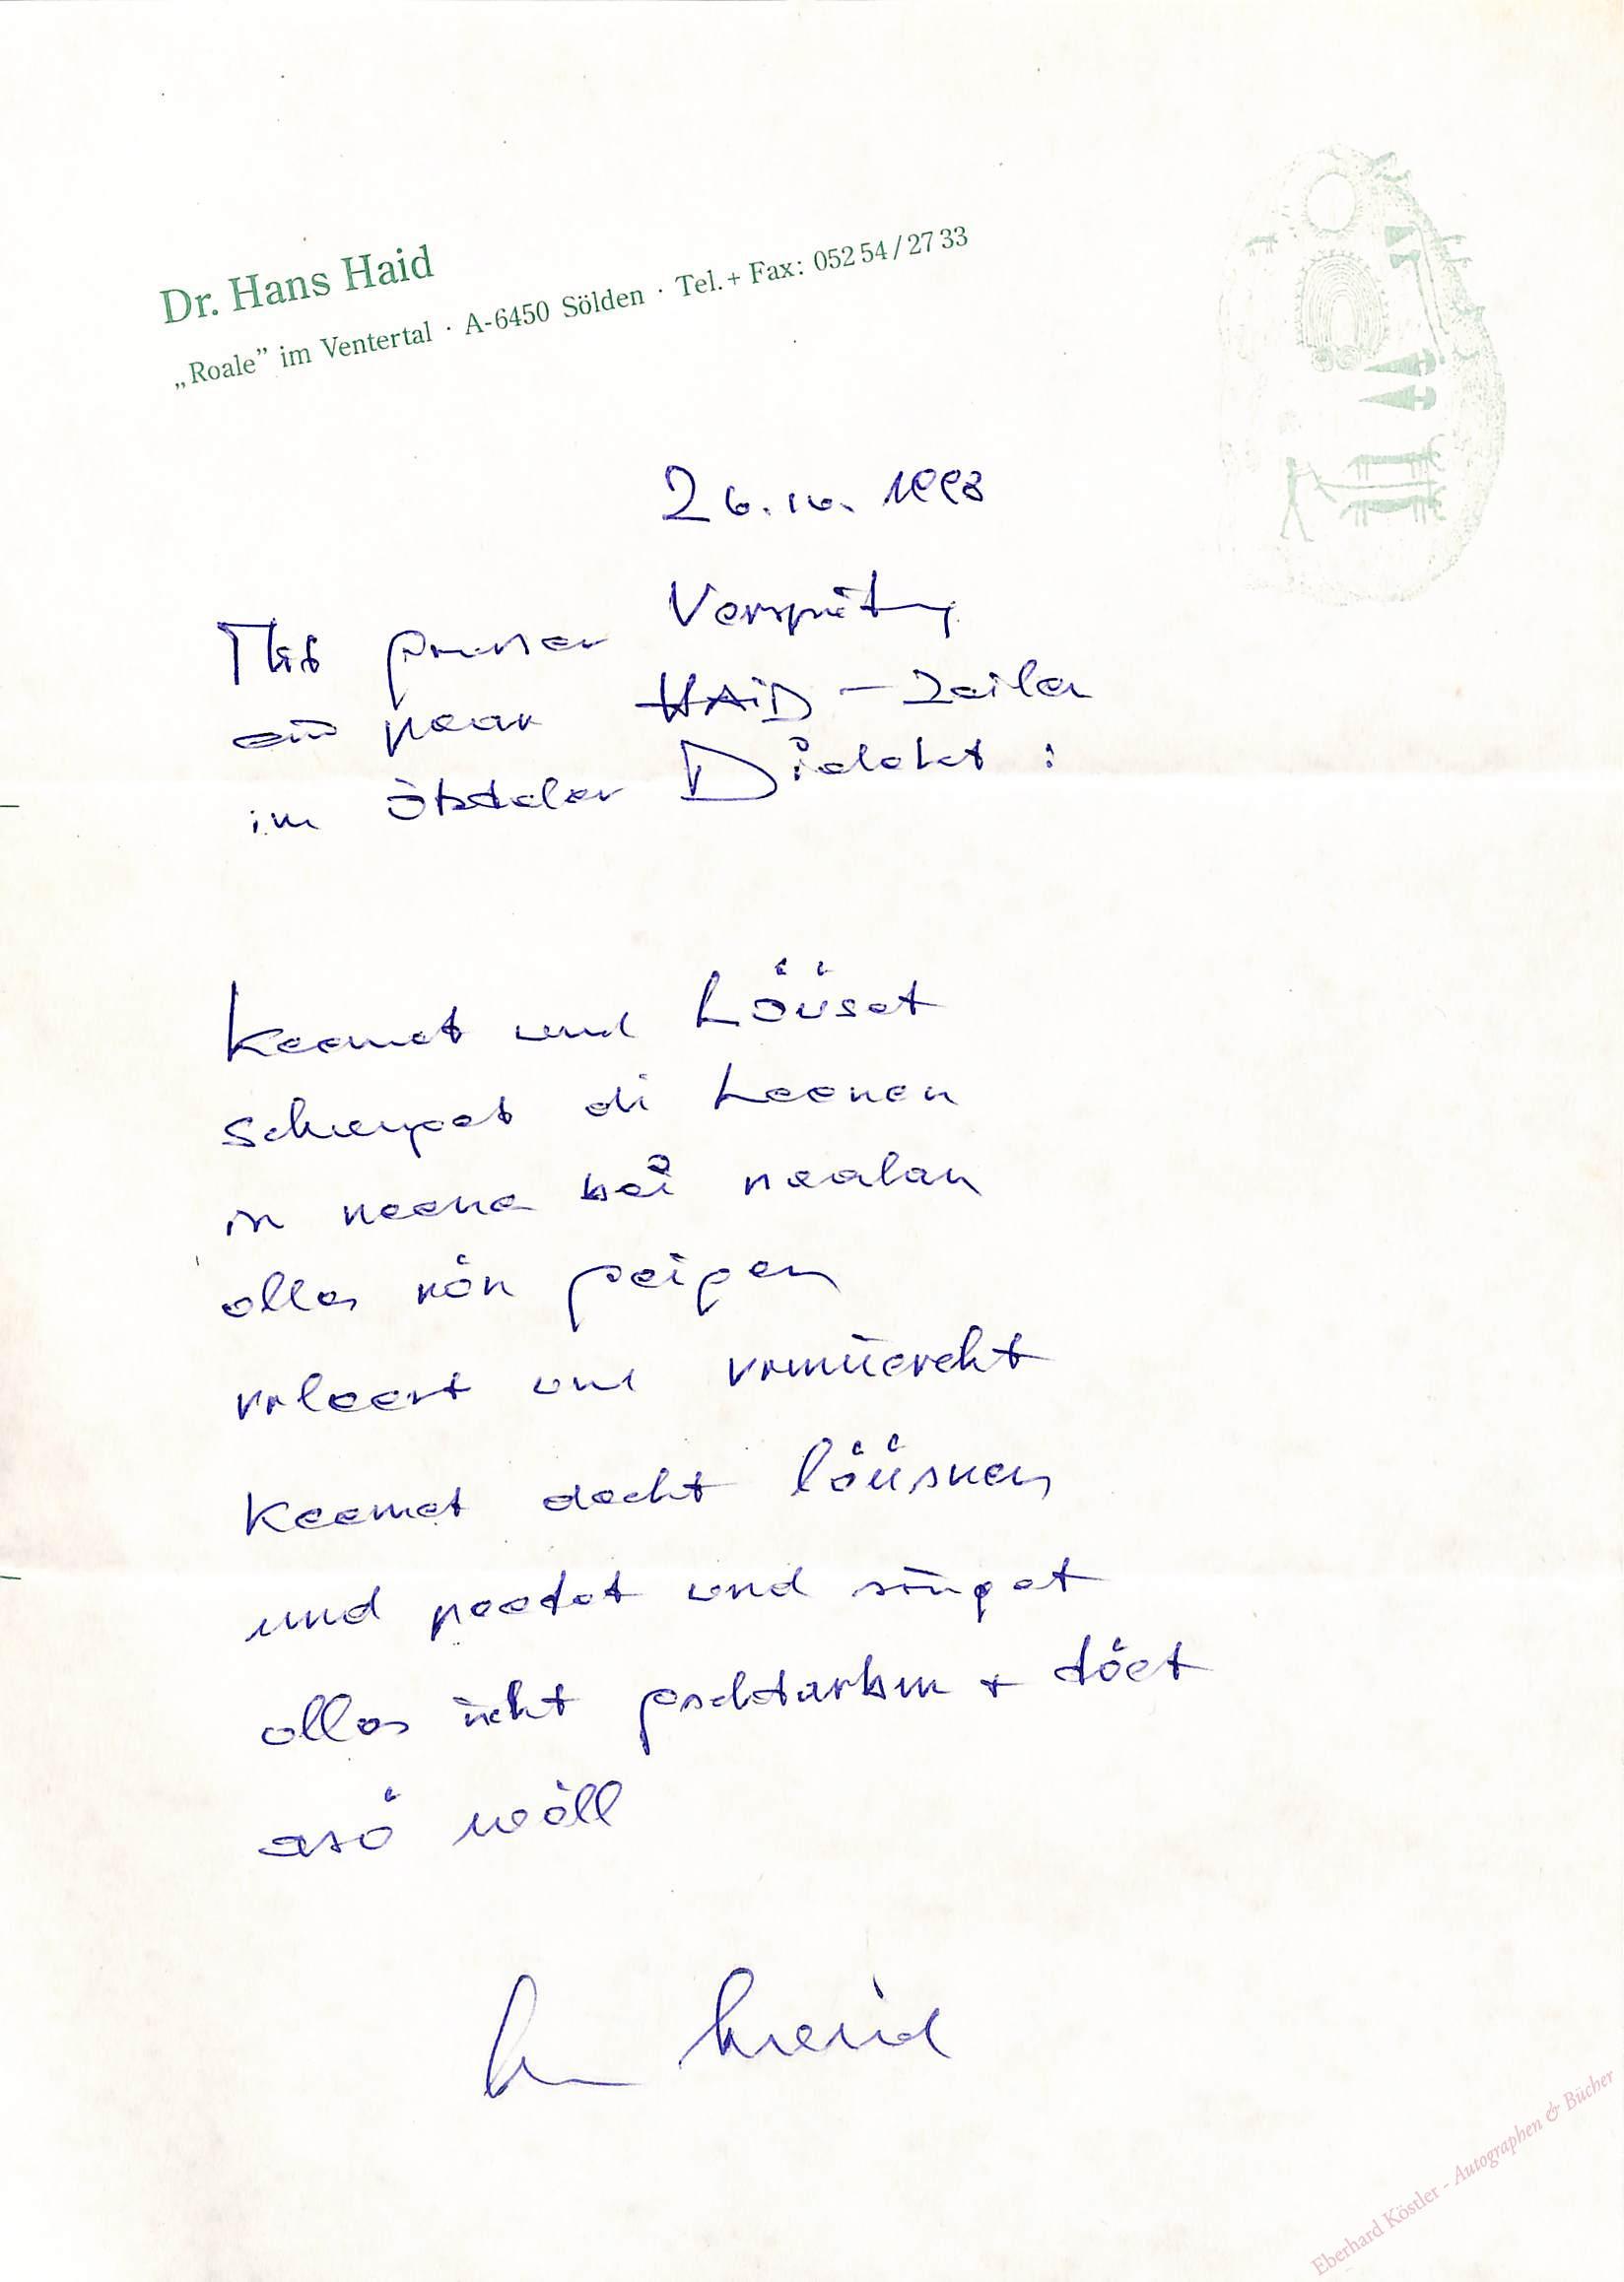 Dr. Hans Haid
„Roale” im Ventertal · A-6450 Sölden · Tel.+ Fax: 052 54 / 27 33
26.10. 1998
Mit grosser Verspätung
ein paar HAID – Zeilen
im Ötztaler Dialekt :
keemet und Löüset
di heenen
in neena
olles
verleert und
keemet decht löüsnen
und peetet und singet
olles ischt gschtarbm + töet
asö wöll
Haid
Eberhard Köstler - Autographen & Bücher